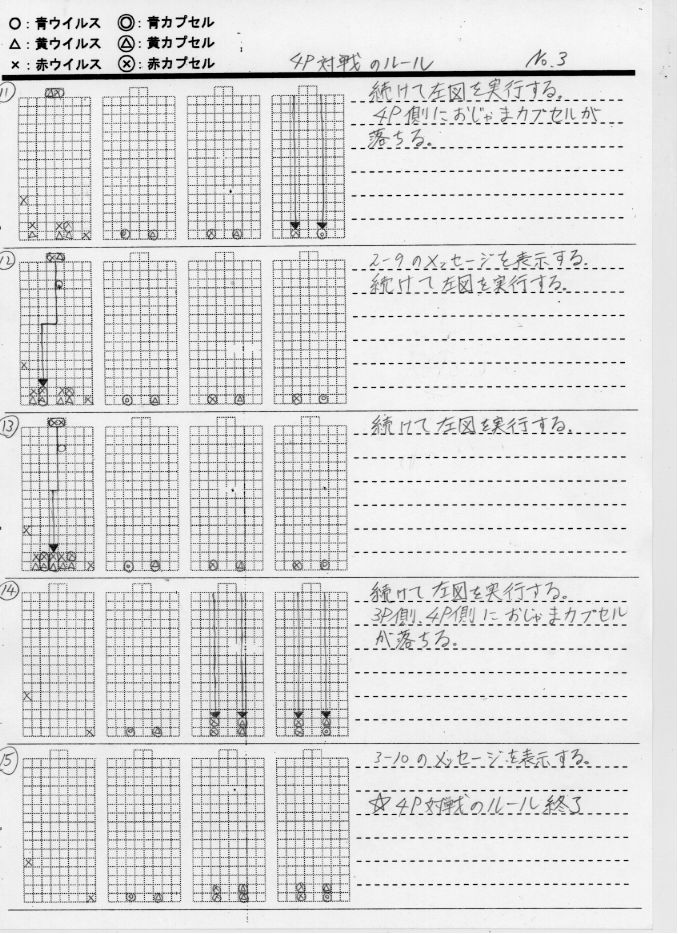 ○：青ウイルス ◎：青カプセル
△：黄ウイルス Ⓐ：黄カプセル
×：赤ウイルス ⓧ：赤カプセル
4P対戦のルール No.3
⑪
続けて左図を実行する。
4P側におじゃまカプセルが
落ちる。
⑫
2-9のメッセージを表示する。
続けて左図を実行する。
⑬
続けて左図を実行する。
⑭
続けて左図を実行する。
3P側、4P側におじゃまカプセル
が落ちる。
⑮
3-10のメッセージを表示する。
☆4P対戦のルール終了